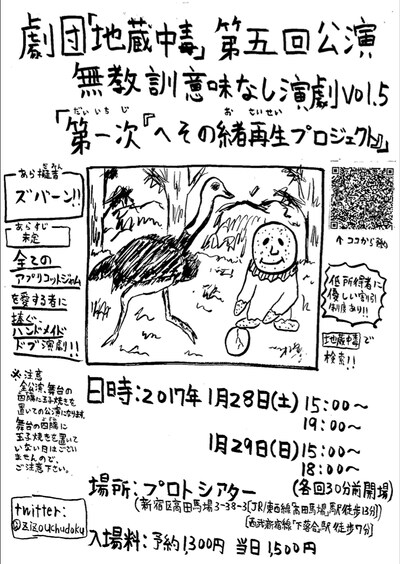 劇団「地蔵中毒」第五回公演
無教訓意味なし演劇vol.5
だいいちじ お さいせい
「第一次『へその緒再生プロジェクト』」
あら擬音
ズバーン!!
あらすじ
未定
全ての
アプリコットジャム
を愛する者に
捧ぐ、
ハンドメイド
ドブ演劇!!
↑ココから予約
低所得者に
優しい割引
制度あり!!
地蔵中毒で
検索!!
※注意
全公演、舞台の
四隅に玉子焼きを
置いての公演になります。
舞台の四隅に
玉子焼きを置いて
いない日はござい
ませんので、
ご注意下さい。
日時:2017年1月28日(土)15:00〜
19:00〜
1月29日(日)15:00〜
18:00〜
(各回30分前開場)
場所:プロトシアター
(新宿区高田馬場3-38-3[JR/東西線「高田馬場」駅徒歩13分]
[西武新宿線「下落合」駅徒歩7分]
入場料:予約1,300円 当日1,500円
twitter:
@zizouchudoku